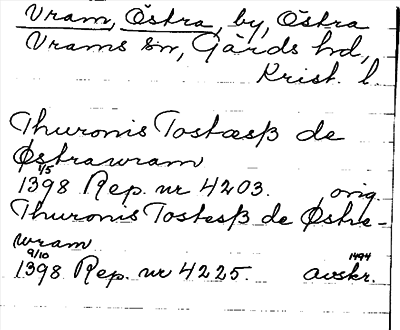 Vram, Östra, by, Östra
Vrams sn, Gärds hd,
Krist. l.
Thuronis Tostæsß de
Østrawram
1/5
1398 Rep. nr 4203. orig.
Thuronis Tostesß de Østre-
wram
9/10 1494
1398 Rep. nr 4225. avskr.